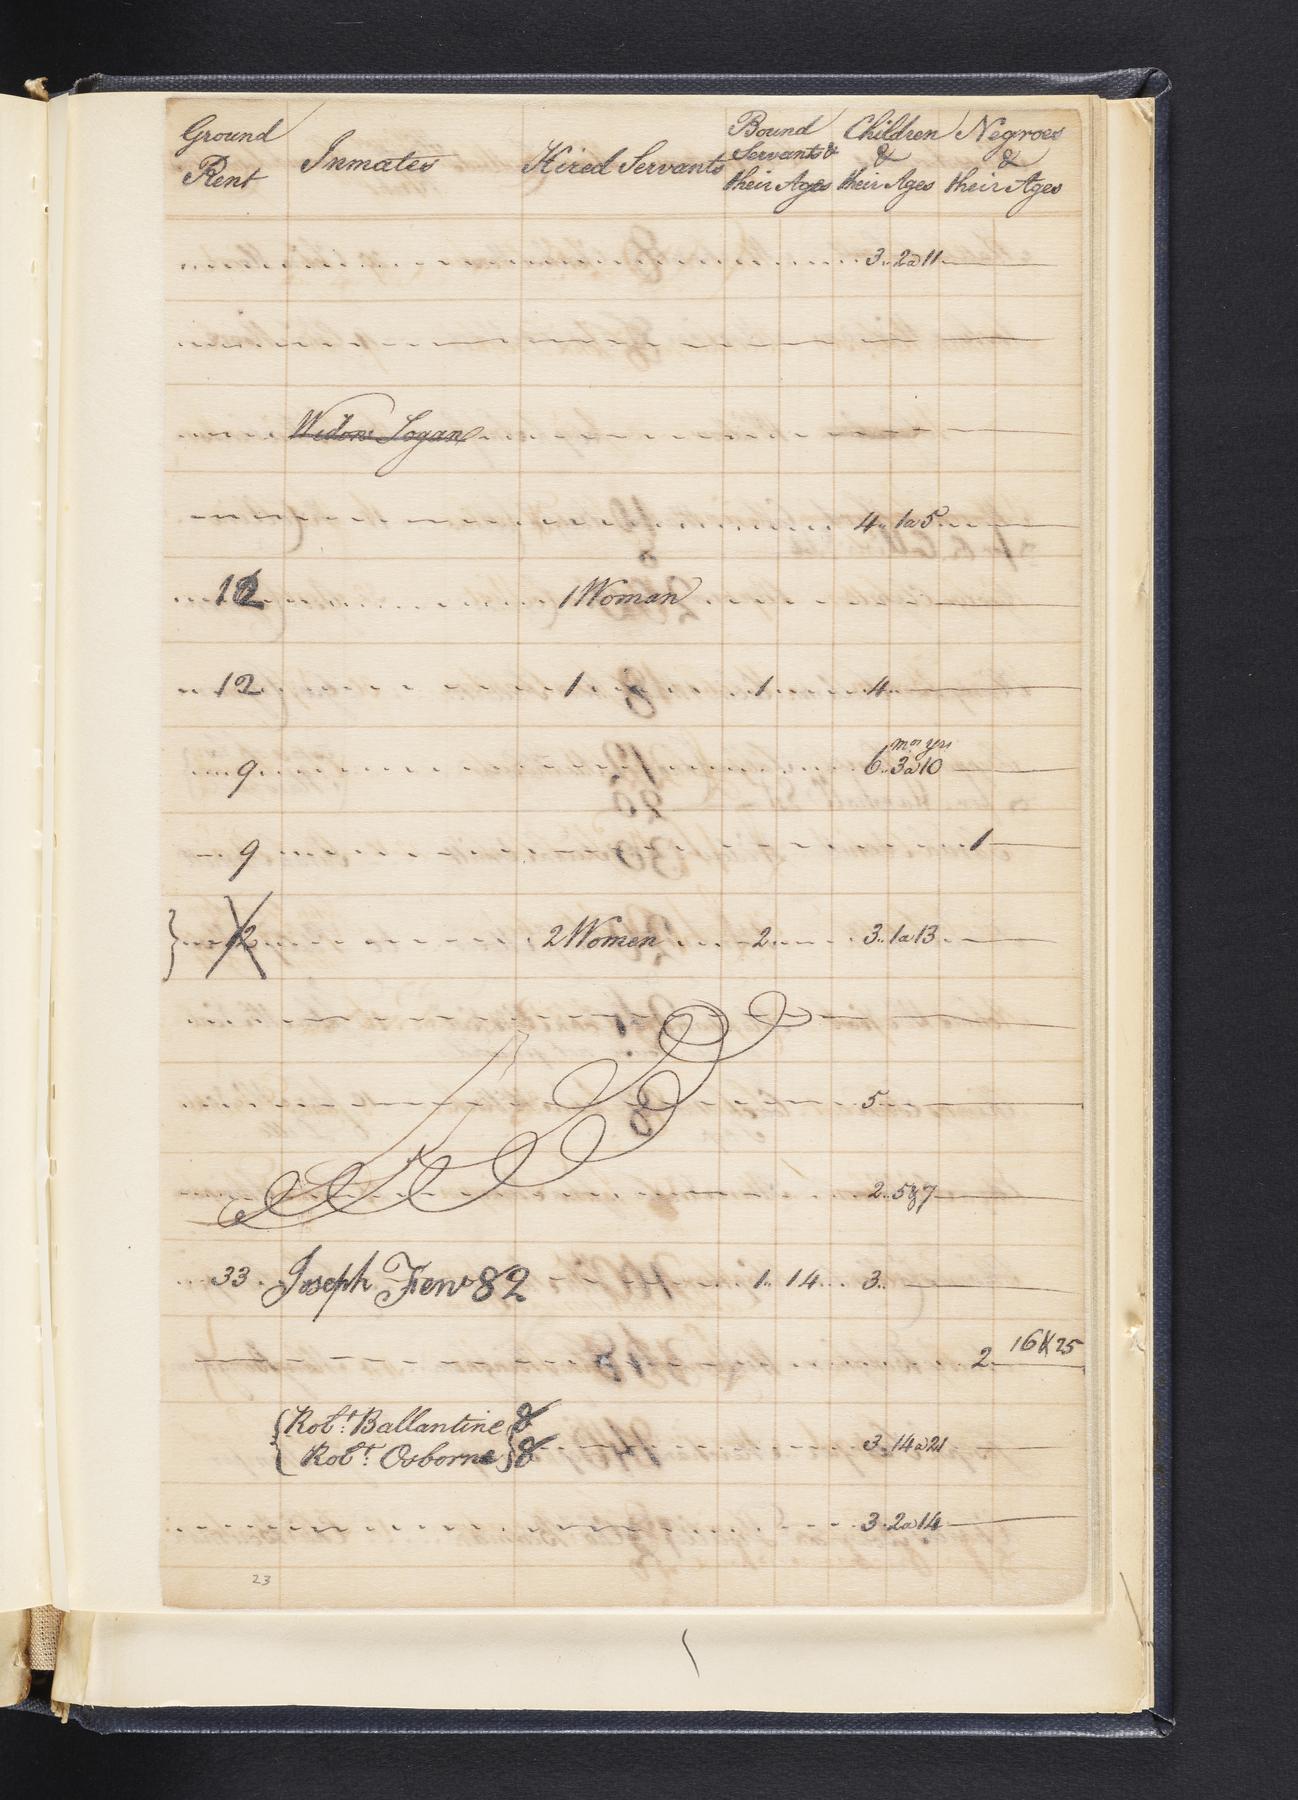 Ground Rent Inmates Hired Servants Bound Servants & their Ages Children & their Ages Negroes & their Ages
3.. 2 a 11
Widow Logan
4.. 1 a 5
12 1 Woman
12 1 1 4
mos yrs
9 6.. 3 a 10
9 1
12 2 Women 2 3.. 1 a 13
5
2.. 5 & 7
33 Joseph Fen 82 1.. 14 3..
2 16 & 25
Robt. Ballantine 8
Robt. Osborne 8 3.. 14 a 21
3.. 2 a 14
23